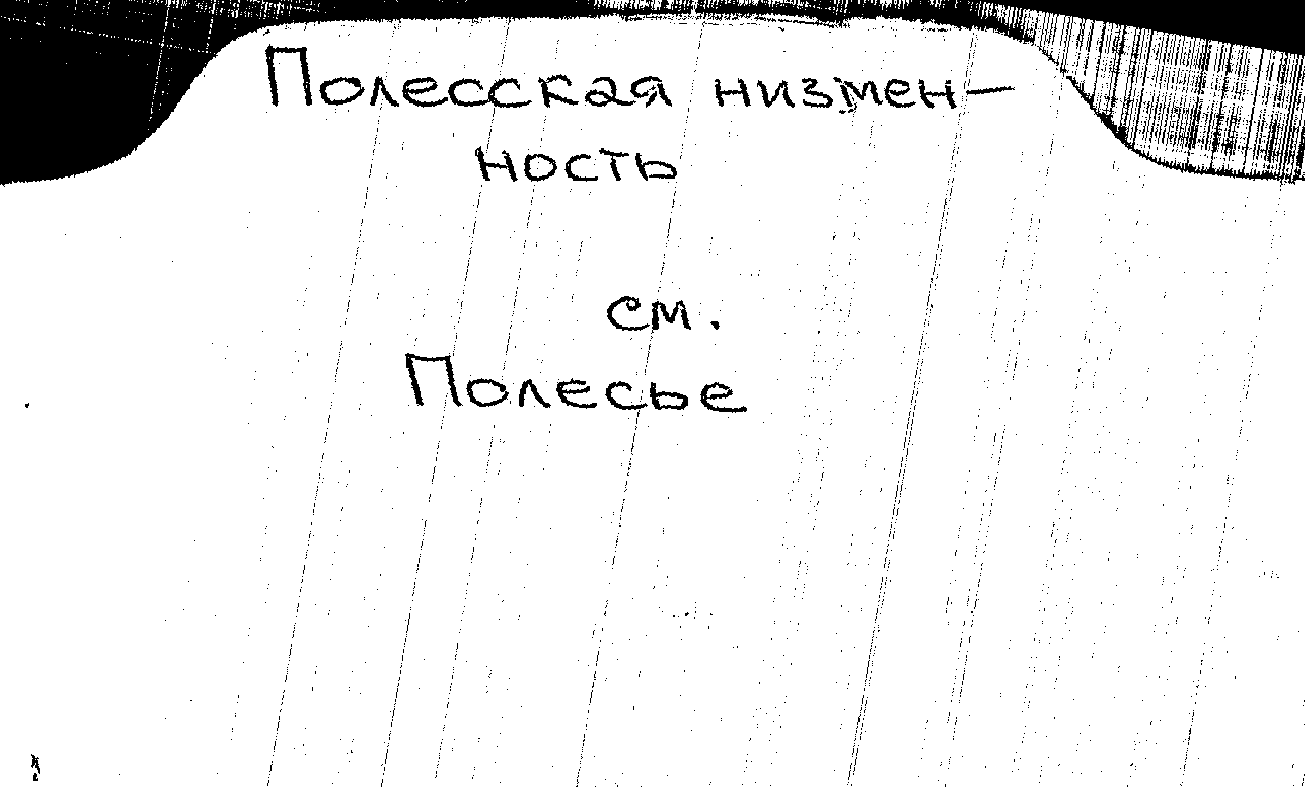 Полесская низмен-
ность
см.
Полесье